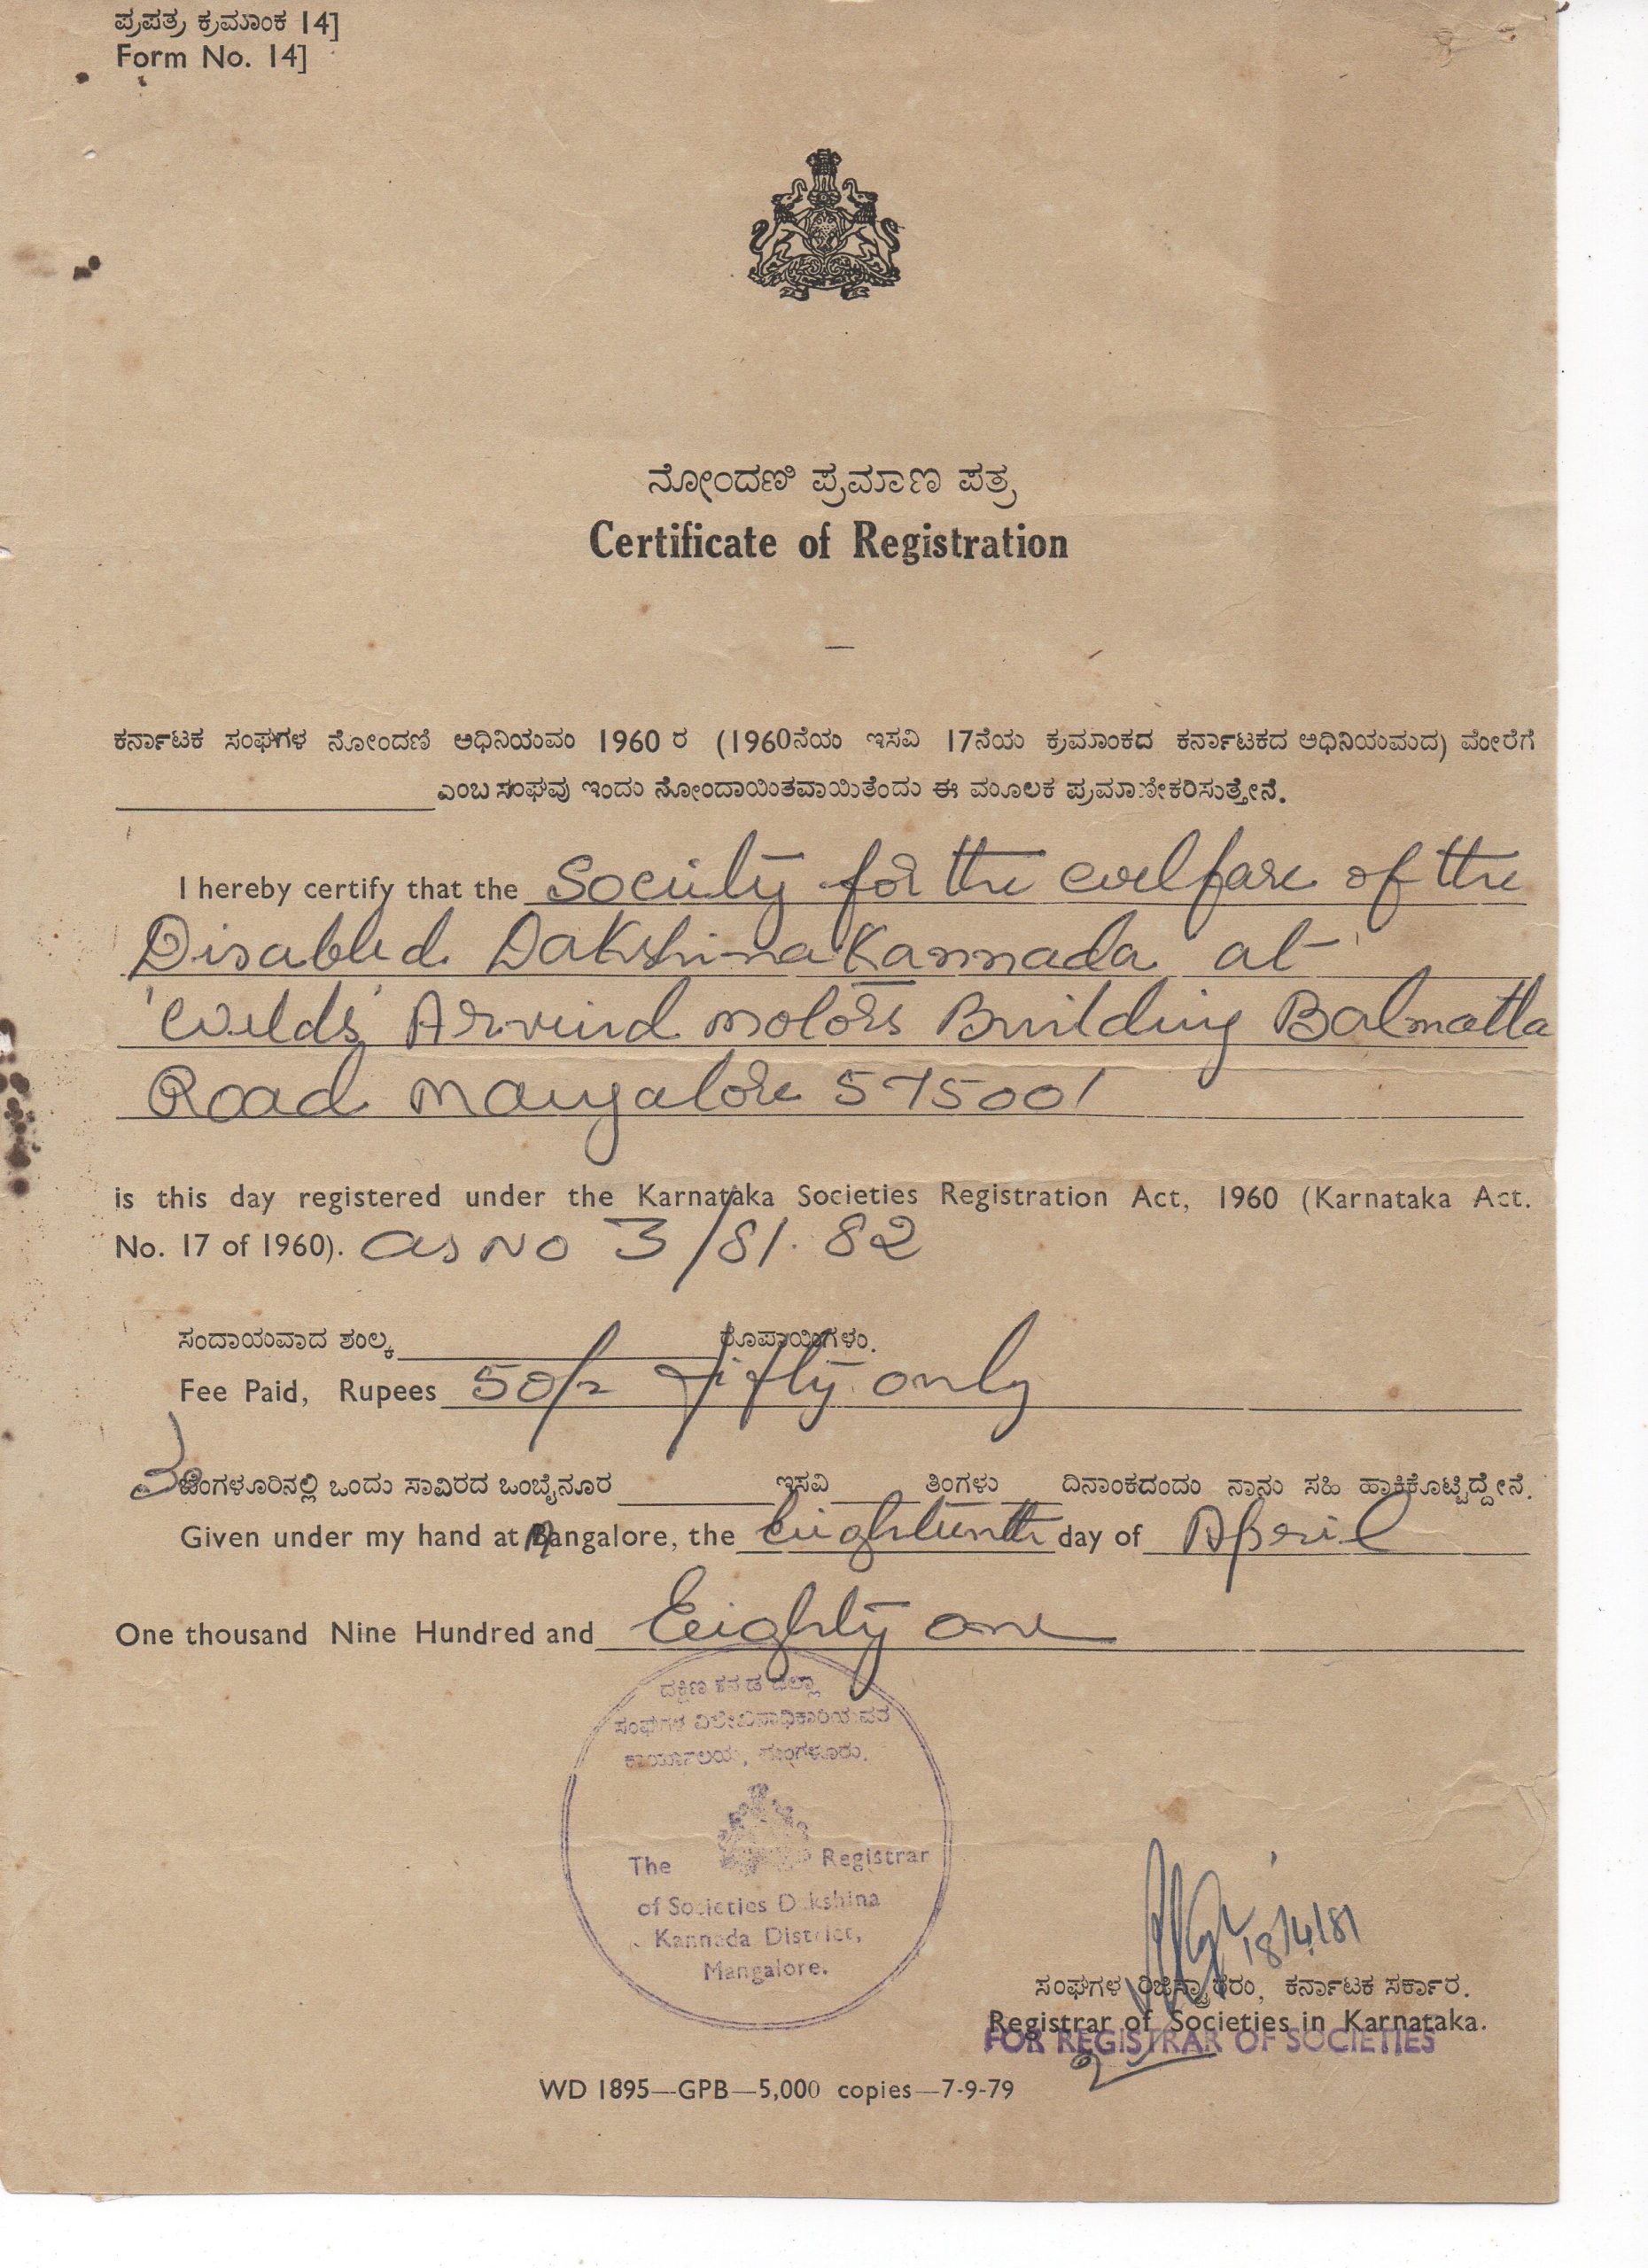 ಪ್ರಪತ್ರ ಕ್ರಮಾಂಕ 14]
Form No. 14]
ನೋಂದಣಿ ಪ್ರಮಾಣ ಪತ್ರ
Certificate of Registration
ಕರ್ನಾಟಕ ಸಂಘಗಳ ನೋಂದಣಿ ಅಧಿನಿಯಮಂ 1960 ರ (1960ನೆಯ ಇಸವಿ 17ನೆಯ ಕ್ರಮಾಂಕದ ಕರ್ನಾಟಕದ ಅಧಿನಿಯಮದ) ಮೇರೆಗೆ
ಎಂಬ ಸಂಘವು ಇಂದು ನೋಂದಾಯಿತವಾಯಿತೆಂದು ಈ ಮೂಲಕ ಪ್ರಮಾಣೀಕರಿಸುತ್ತೇನೆ.
I hereby certify that the Society for the welfare of the
Disabled Dakshina Kannada at
Arvind motors Building Balmatta
Road Mangalore 575001
is this day registered under the Karnataka Societies Registration Act, 1960 (Karnataka Act.
No. 17 of 1960). as no 3/81.82
ಸಂದಾಯವಾದ ಶುಲ್ಕ ರೂಪಾಯಿಗಳು.
Fee Paid, Rupees 50/- fifty only
ಮಂಗಳೂರಿನಲ್ಲಿ ಒಂದು ಸಾವಿರದ ಒಂಬೈನೂರ ಇಸವಿ ತಿಂಗಳು ದಿನಾಂಕದಂದು ನಾನು ಸಹಿ ಹಾಕಿಕೊಟ್ಟಿದ್ದೇನೆ.
Given under my hand at Mangalore, the Eighteenth day of April
One thousand Nine Hundred and Eighty one
ದಕ್ಷಿಣ ಕನ್ನಡ ಜಿಲ್ಲಾ
ಸಂಘಗಳ
ಕಾರ್ಯಾಲಯ, ಮಂಗಳೂರು.
The Registrar
of Societies Dakshina
Kannada District,
Mangalore.
18/4/81
ಸಂಘಗಳ ರಿಜಿಸ್ಟ್ರಾರರು, ಕರ್ನಾಟಕ ಸರ್ಕಾರ.
Registrar of Societies in Karnataka.
FOR REGISTRAR OF SOCIETIES
WD 1895—GPB—5,000 copies—7-9-79